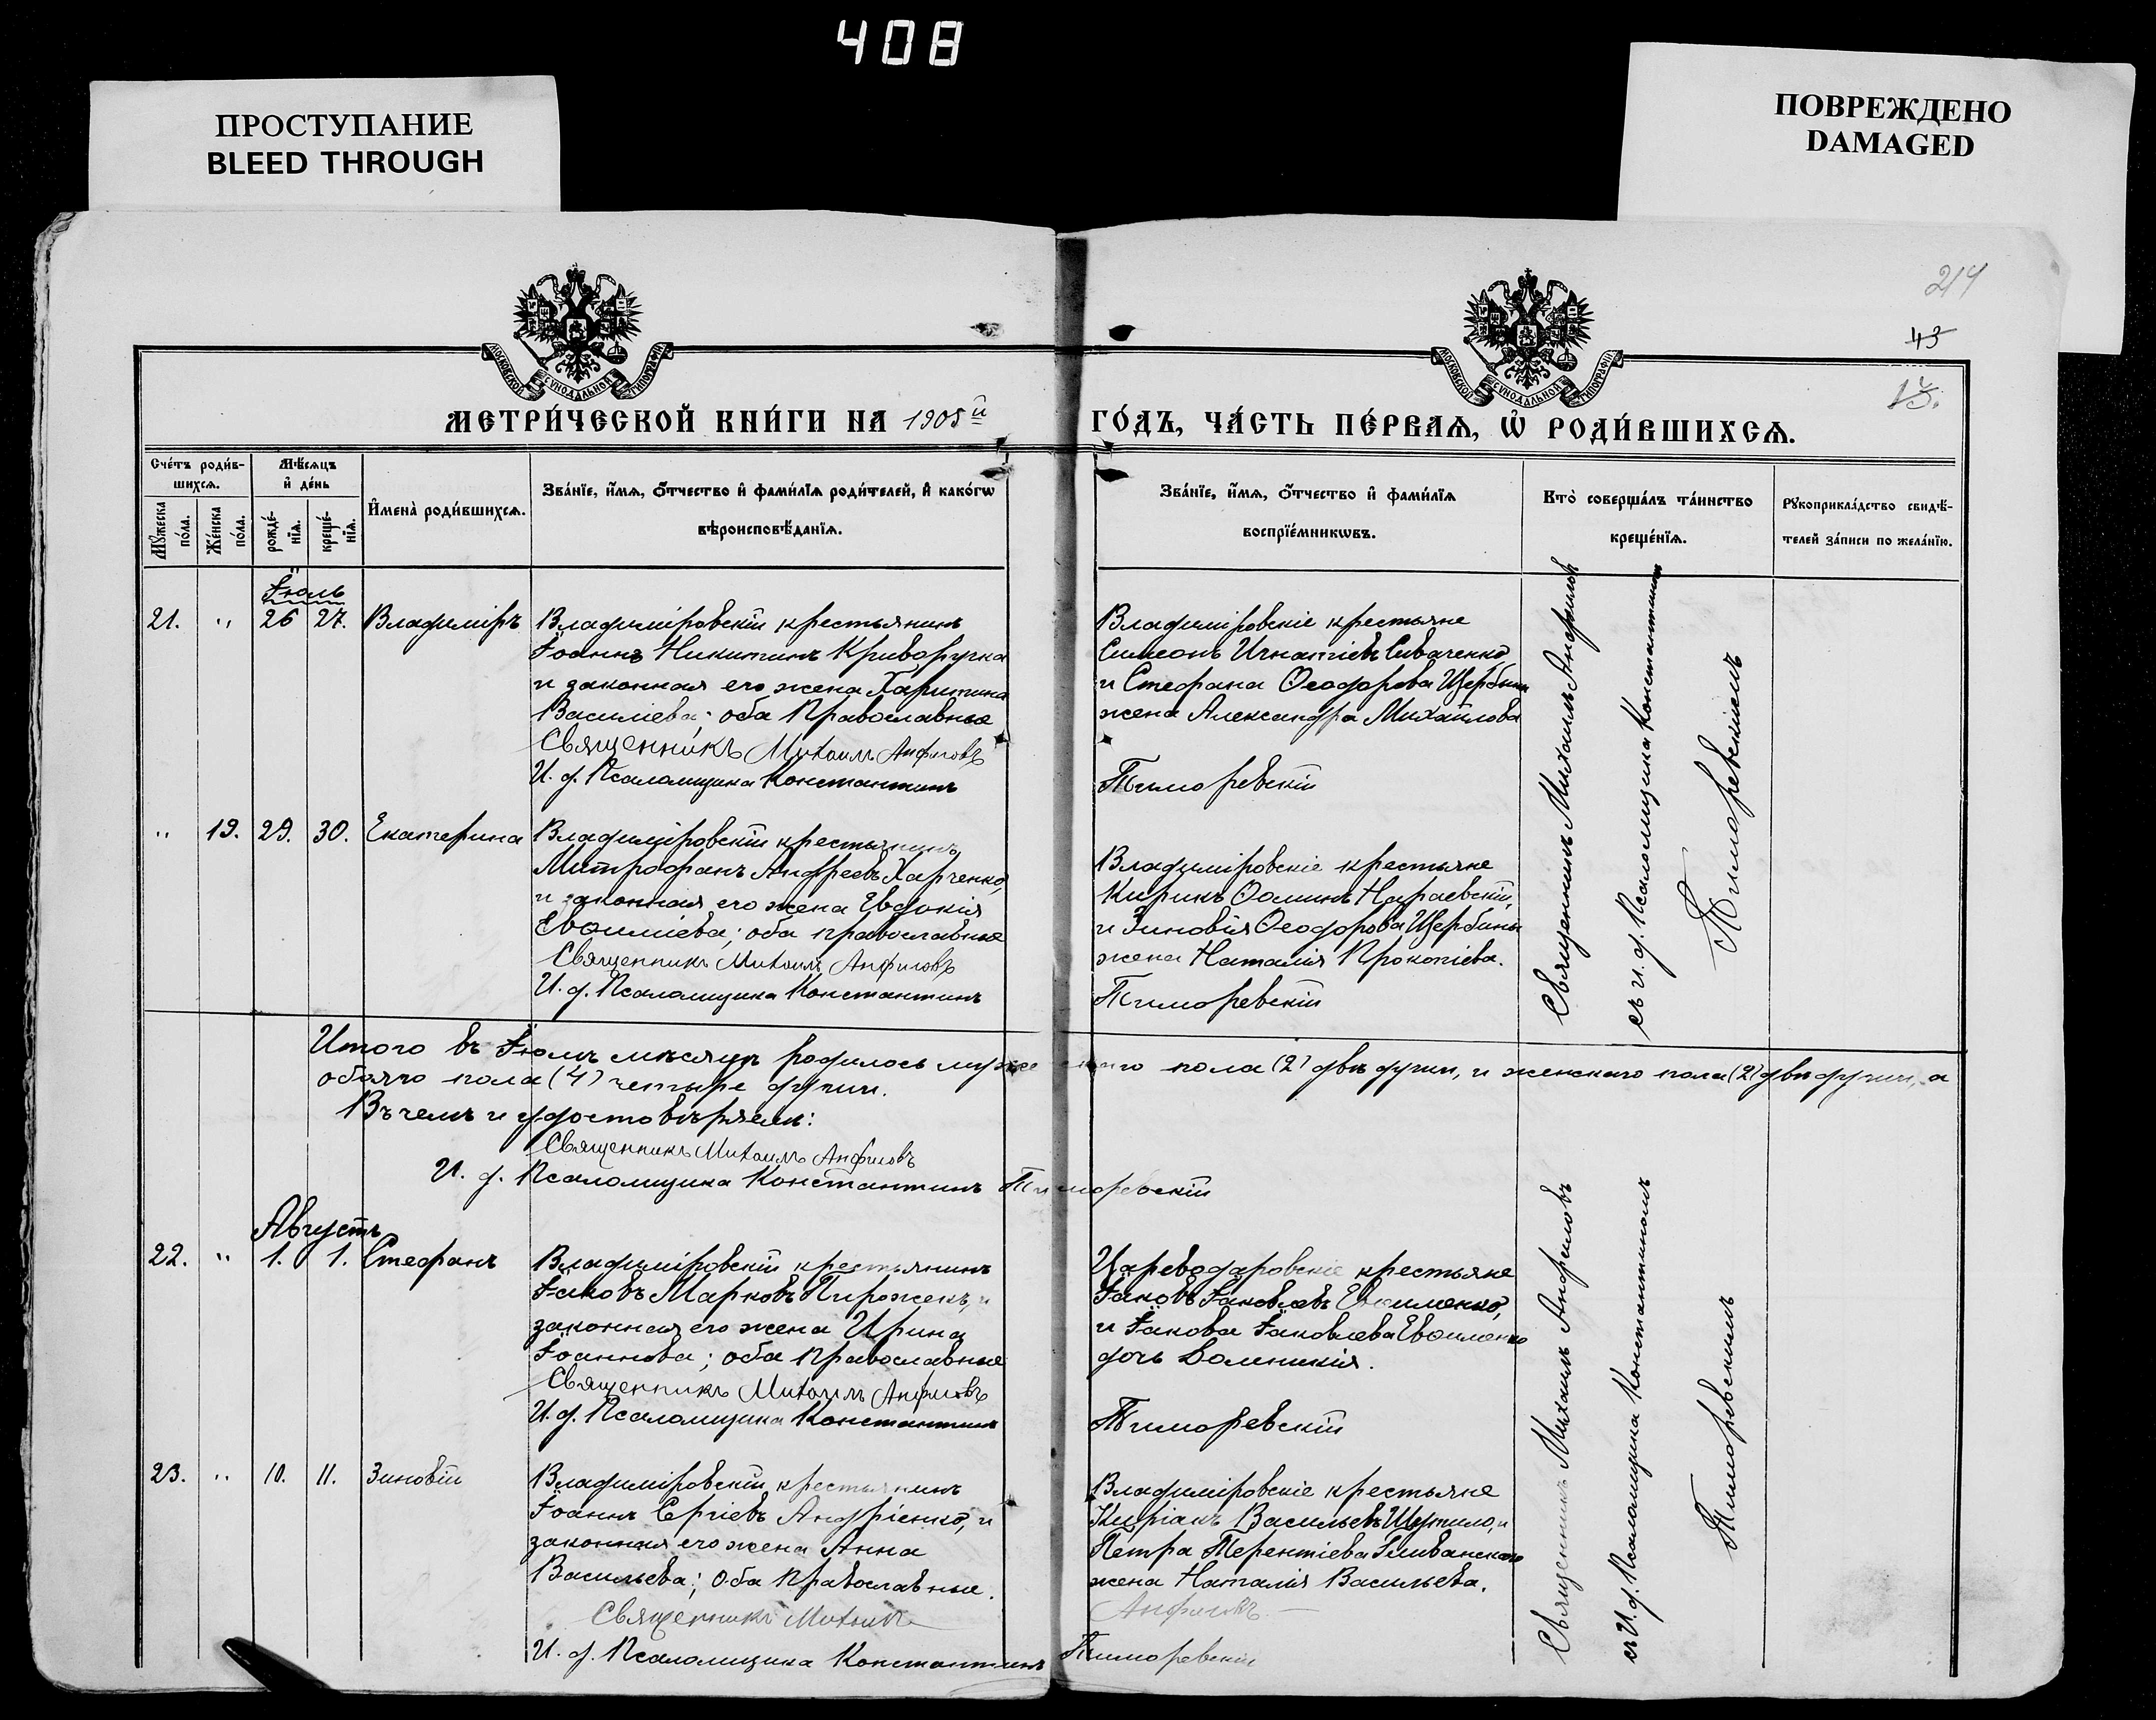 408
ПРОСТУПАНИЕ
BLEED THROUGH
ПОВРЕЖДЕНО
DAMAGED
214
43
МОСКОВСКОЙ СѴНОДАЛЬНОЙ ТИПОГРАФІИ
МОСКОВСКОЙ СѴНОДАЛЬНОЙ ТИПОГРАФІИ
МЕТРИ́ЧЕСКОЙ КНИ́ГИ НА 1905й
ГО́ДЪ, ЧА́СТЬ ПЕ́РВАѦ, Ѡ҆ РОДИ́ВШИХСѦ.
Сче́тъ роди́вшихсѧ.
Мѹ́жеска по́ла.
Же́нска по́ла.
Мѣ́сѧцъ и҆ де́нь
рожде́нїѧ.
креще́нїѧ.
И҆мена̀ роди́вшихсѧ.
Зва́нїе, и҆́мѧ, ѻ҆́тчество и҆ фами́лїѧ роди́телей, и҆ како́гѡ
вѣроисповѣ́данїѧ.
Зва́нїе, и҆́мѧ, ѻ҆́тчество и҆ фами́лїѧ
воспрїе́мникѡвъ.
Кто̀ соверша́лъ та́инство
креще́нїѧ.
Рѹкоприкла́дство свидѣ́-
телей за́писи по жела́нїю.
Іюль
21. " 26 27. Владиміръ
Владиміровскій крестьянинъ
Іоаннъ Никитинъ Криворучка
и законная его жена Харитина
Василіева; оба Православные
Священникъ Михаилъ Анфиловъ
И. д. Псаломщика Константинъ
Владиміровскіе крестьяне
Симеонъ Игнатіевъ Сиваченко,
и Стефана Ѳеодорова Щербины
жена Александра Михайлова
Тиморевскій
Священникъ Михаилъ Анфиловъ
съ и. д. Псаломщика Константиномъ
Тиморевскимъ
" 19. 29. 30. Екатерина
Владиміровскій крестьянинъ
Митрофанъ Андреевъ Харченко,
и законная его жена Евдокія
Евѳиміева; оба православные
Священникъ Михаилъ Анфиловъ
И. д. Псаломщика Константинъ
Владиміровскіе крестьяне
Кирикъ Ѳоминъ
и Зиновія Ѳеодорова Щербины
жена Наталія Прокопіева.
Тиморевскій
Итого въ Іюлѣ мѣсяцѣ родилось мужескаго пола (2) двѣ души, и женскаго пола (2) двѣ души, а
обоего пола (4) четыре души.
Въ чемъ и удостовѣряемъ:
Священникъ Михаилъ Анфиловъ
И. д. Псаломщика Константинъ Тиморевскій
Августъ
22. " 1. 1. Стефанъ
Владиміровскій крестьянинъ
Іаковъ Марковъ Пирожекъ, и
законная его жена Ирина
Іоаннова; оба Православные
Священникъ Михаилъ Анфиловъ
И. д. Псаломщика Константинъ
Цареводаровскіе крестьяне
Іаковъ Іаковлевъ Евѳименко,
и Іакова Іаковлева Евѳименко
дочь Доминикія.
Тиморевскій
Священникъ Михаилъ Анфиловъ
съ И. д. Псаломщика Константиномъ
Тиморевскимъ
23. " 10. 11. Зиновій
Владиміровскій крестьянинъ
Іоаннъ Сергіевъ Андріенко, и
законная его жена Анна
Васильева; оба Православные.
Священникъ Михаилъ
И. д. Псаломщика Константинъ
Владиміровскіе крестьяне
Кипріанъ Васильевъ и
Петра Терентіева
жена Наталія Васильева.
Анфиловъ
Тиморевскій